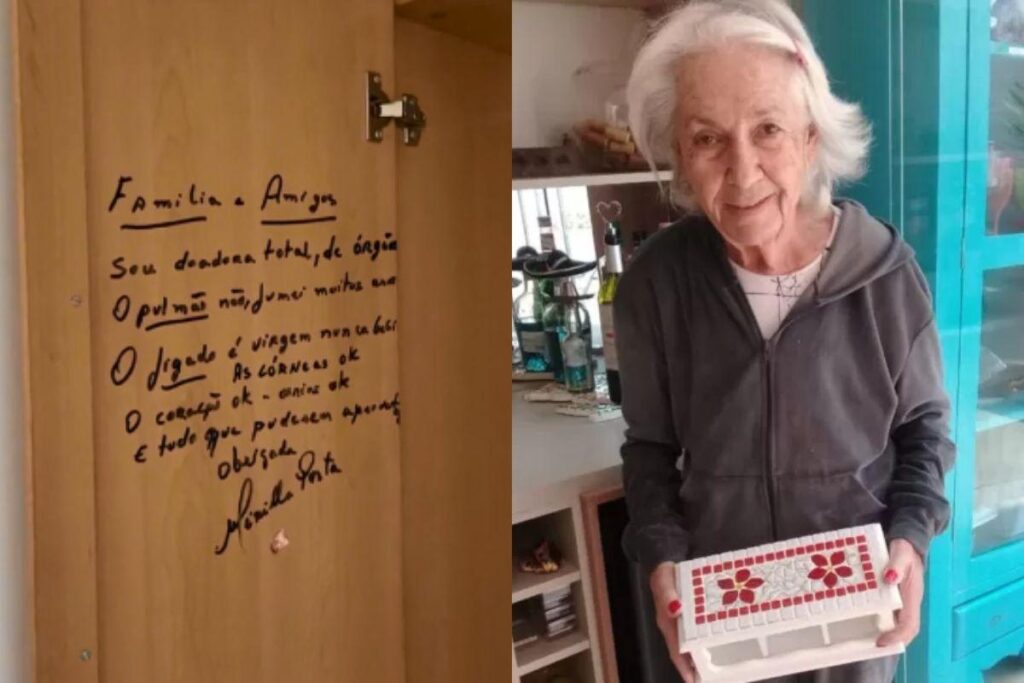 Familia e Amigos
Sou doadora total, de órgão
O pulmão não, fumei muitos
O fígado é virgem nunca bebi
As córneas ok
O coração ok - ok
E tudo que puderem
Obrigada
Porta